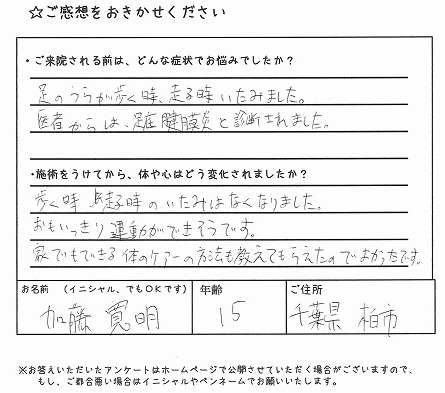 ☆ご感想をおきかせください
・ご来院される前は、どんな症状でお悩みでしたか？
足のうらが歩く時、走る時いたみました。
医者からは、足底腱膜炎と診断されました。
・施術をうけてから、体や心はどう変化されましたか？
歩く時 走る時のいたみはなくなりました。
おもいっきり運動ができそうです。
家でもできる体のケアーの方法も教えてもらえたのでよかったです。
お名前 （イニシャル、でもOKです） 年齢 ご住所
加藤 寛明 15 千葉県 柏市
※お答えいただいたアンケートはホームページで公開させていただく場合がございますので、
もし、ご都合悪い場合はイニシャルやペンネームでお願いいたします。